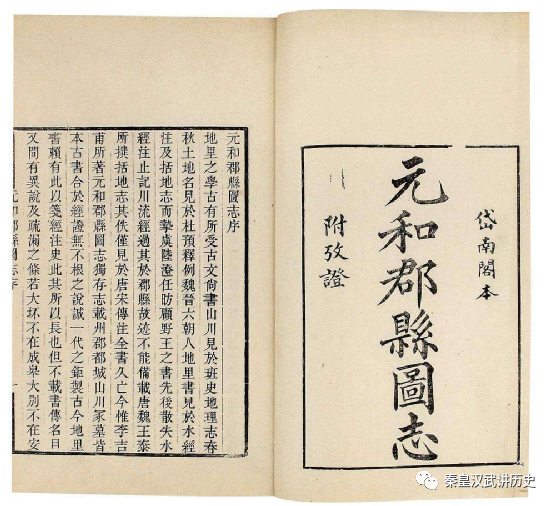 岱南閣本
元和郡縣圖志
附攷證
元和郡縣圖志序
地里之學古有所受古文尙書山川見於班史地理志春
秋土地名見於杜預釋例魏晉六朝人地里書見於水經
注及括地志而摯虞陸澄任昉顧野王之書先後散失水
經注止記川流經過其於郡縣故迹不能備載唐魏王泰
所撰括地志其佚僅見於唐宋傳注全書久亡今惟李吉
甫所著元和郡縣圖志獨存志載州郡都城山川冢墓皆
本古書合於經證無不根之說誠一代之鉅製古今地里
書賴有此以箋經注史此其所以長也但不載書傳名目
又間有異說及疏漏之條若大坏不在成皋大別不在安
元和郡縣圖志序
秦皇汉武讲历史